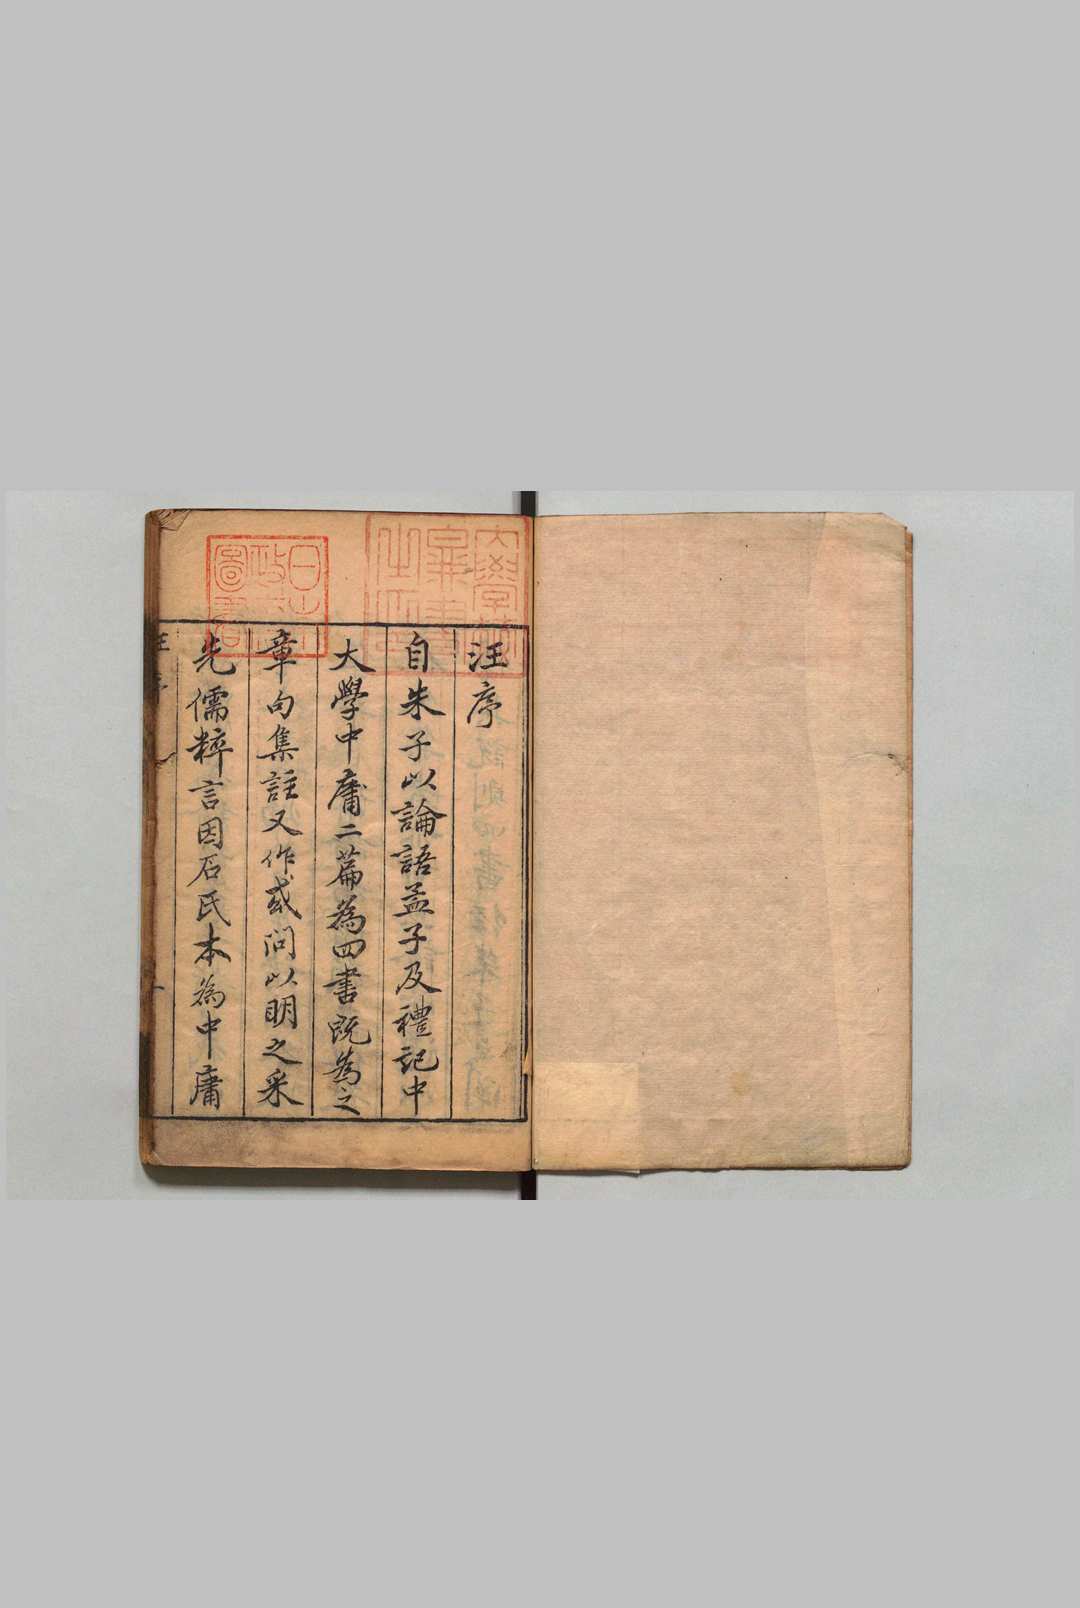 汪序
自朱子以論語孟子及禮記中
大學中庸二篇為四書既為之
章句集註又作或問以明之采
先儒粹言因石氏本為中庸
大學
之印
日
政
圖書